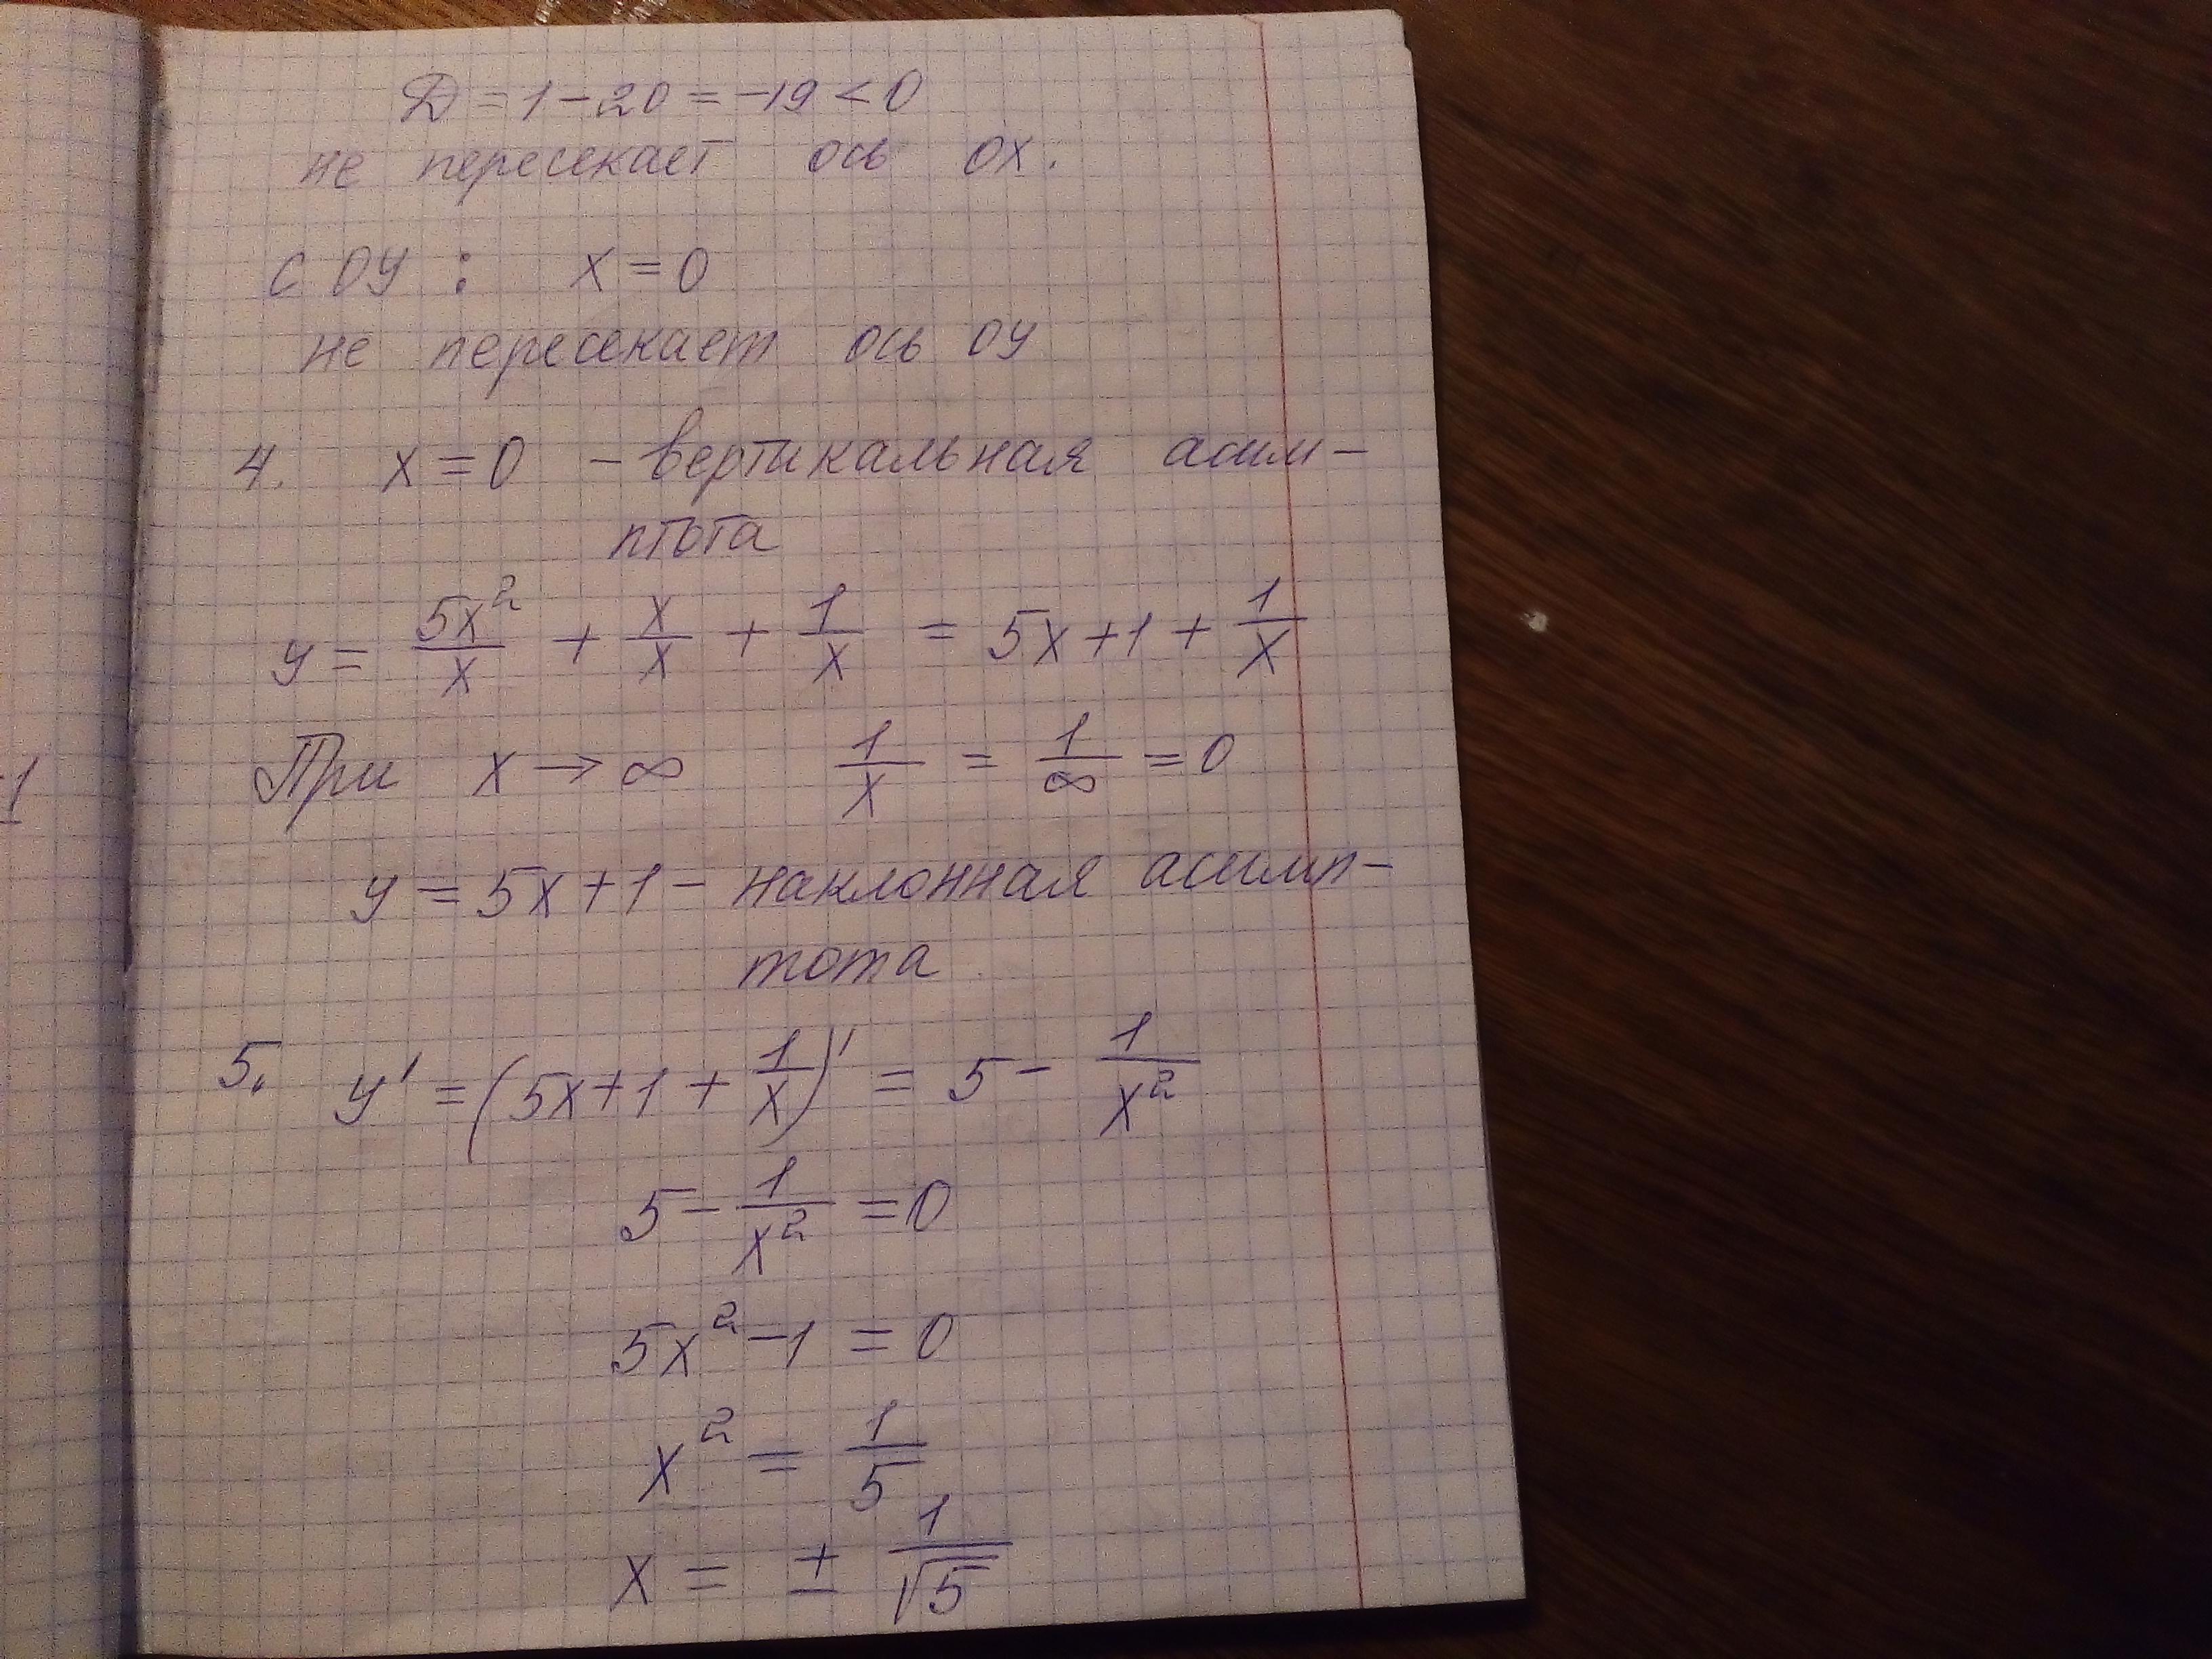 Д = 1 - 20 = -19 < 0
не пересекает ось ох.
с оу : x = 0
не пересекает ось оу
4. x = 0 - вертикальная асим-
птота
y = 5x²/x + x/x + 1/x = 5x + 1 + 1/x
При x → ∞ 1/x = 1/∞ = 0
y = 5x + 1 - наклонная асимп-
тота
5. y' = (5x + 1 + 1/x)' = 5 - 1/x²
5 - 1/x² = 0
5x² - 1 = 0
x² = 1/5
x = ± 1/√5